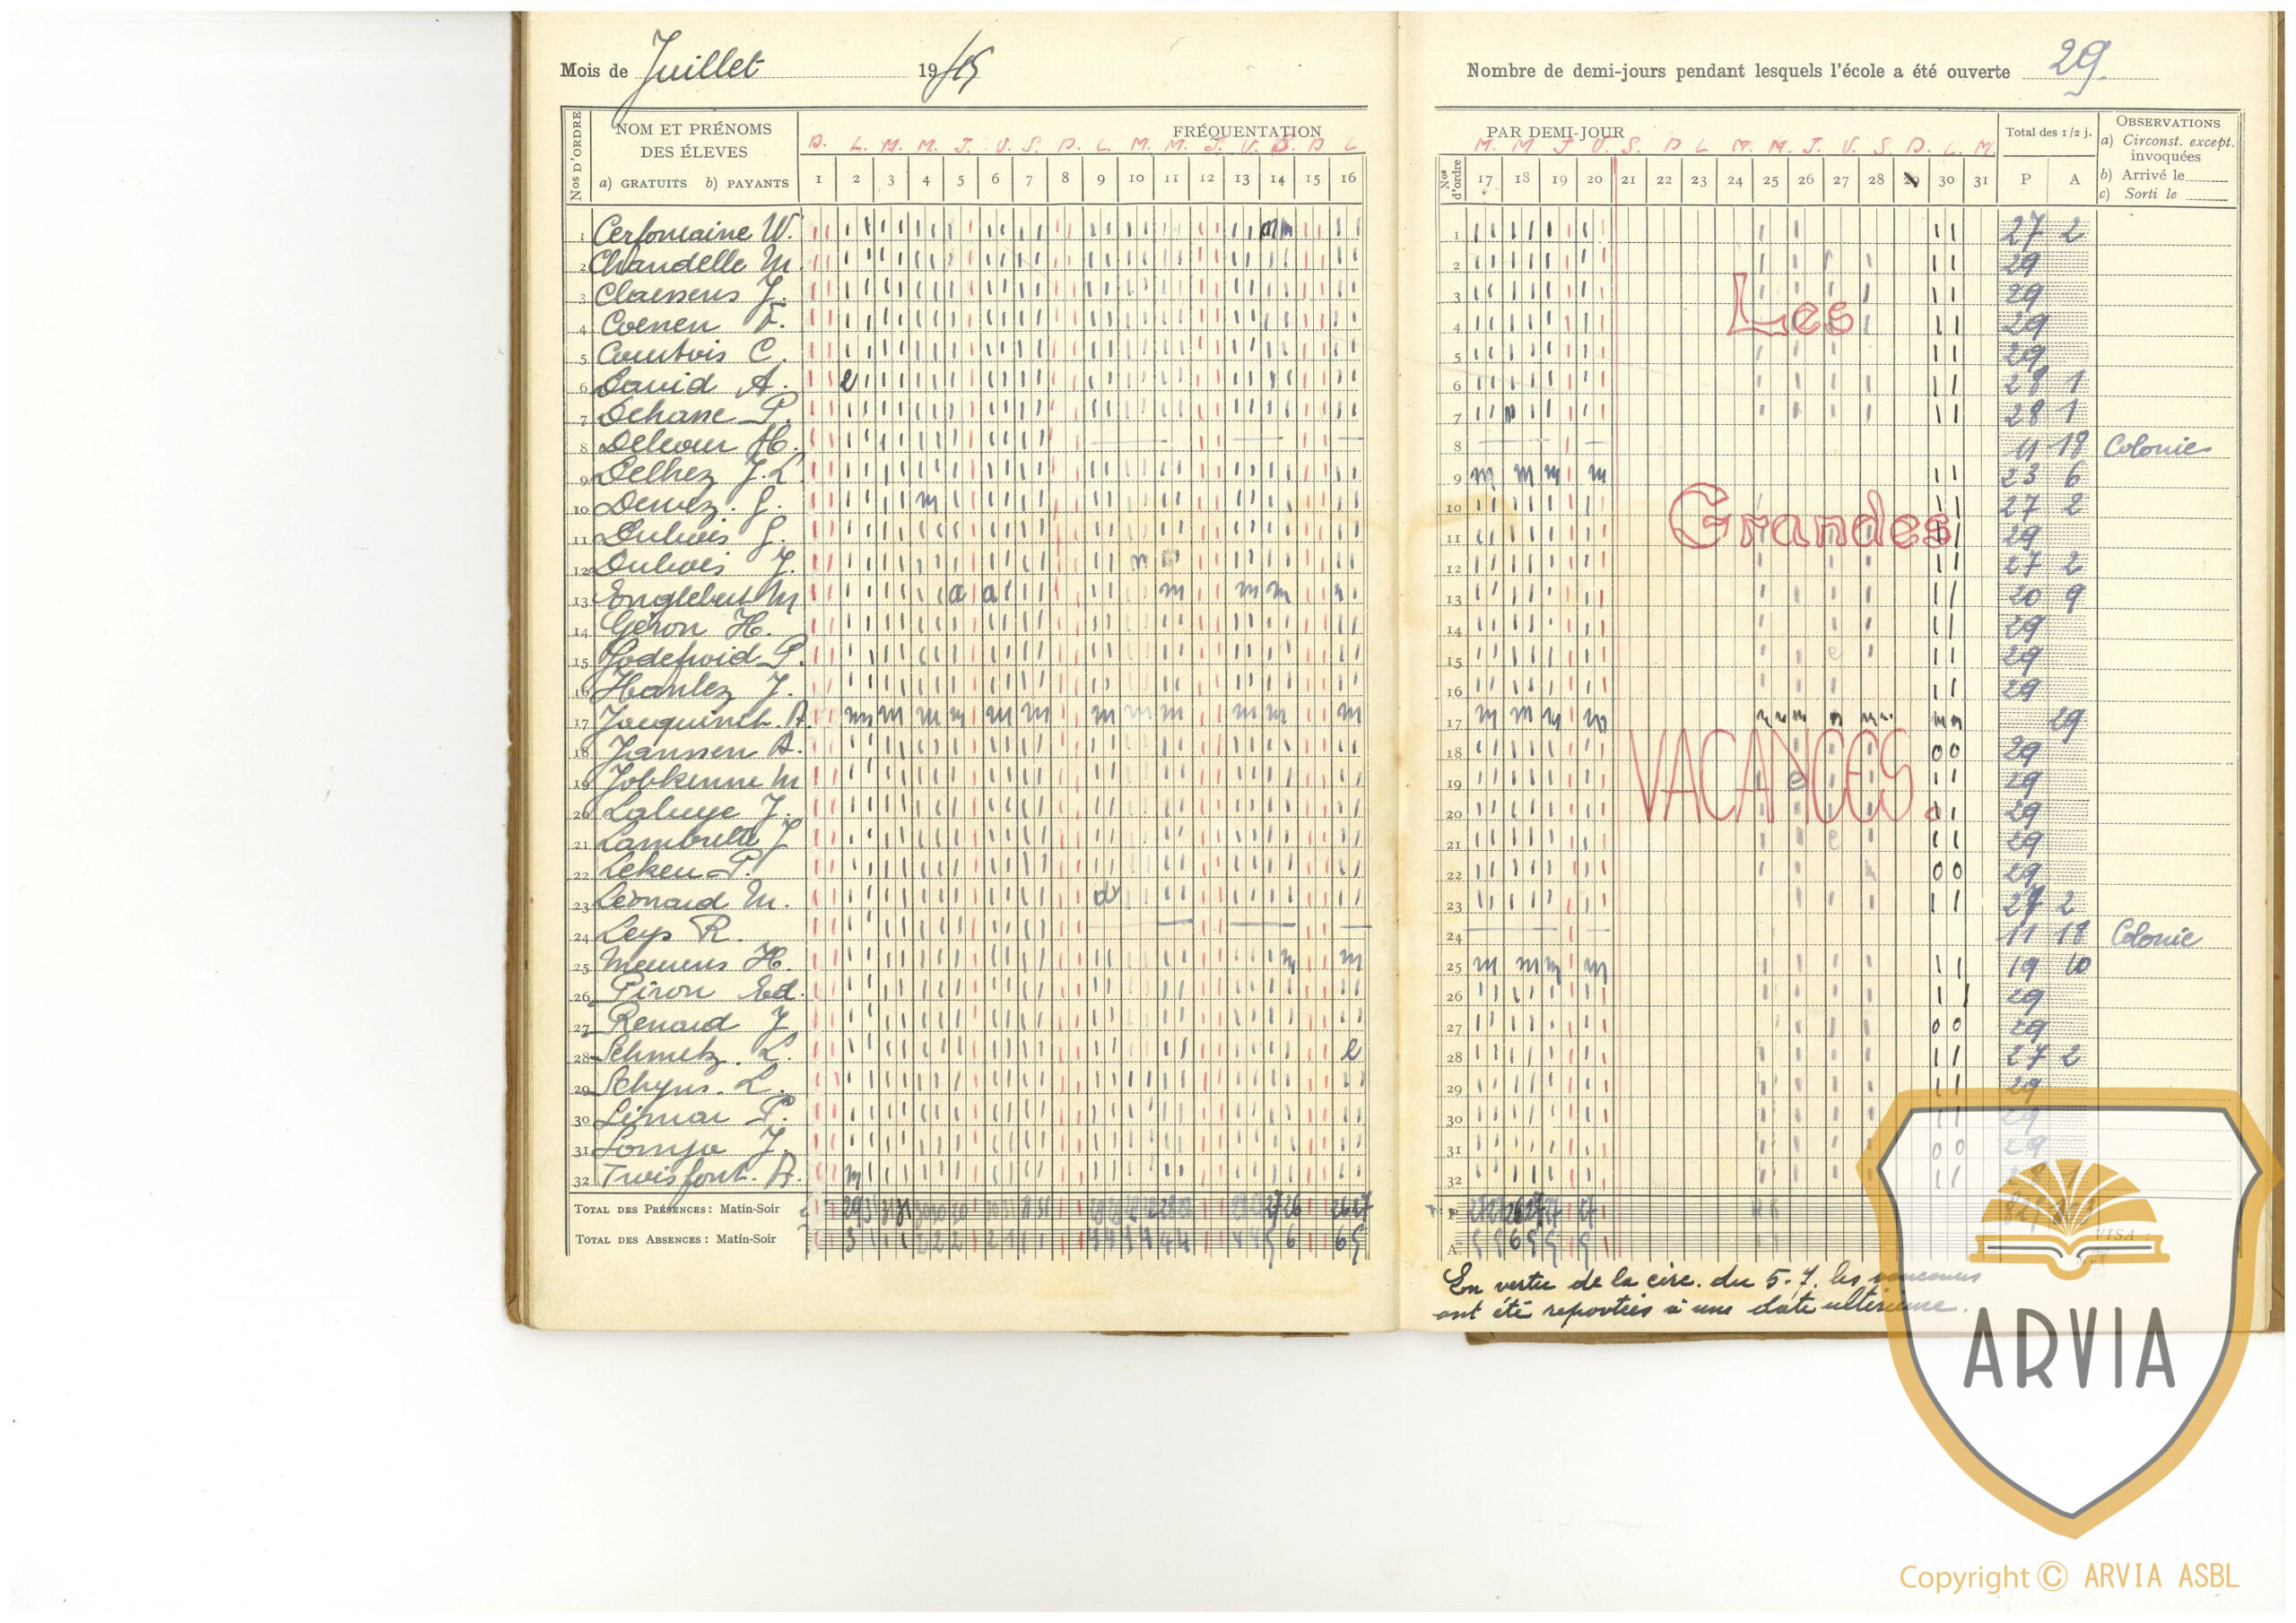 Mois de Juillet 1945
Nombre de demi-jours pendant lesquels l'école a été ouverte 29
Nos D'ORDRE
NOM ET PRÉNOMS
DES ÉLEVES
a) GRATUITS b) PAYANTS
FRÉQUENTATION
D. L. M. M. J. V. S. D. L. M. M. J. V. S. D L
1 2 3 4 5 6 7 8 9 10 11 12 13 14 15 16
PAR DEMI-JOUR
M. M J V. S. D L M. M. J. V. S D. L. M.
Nos d'ordre
17 18 19 20 21 22 23 24 25 26 27 28 29 30 31
Total des 1/2 j.
P A
OBSERVATIONS
a) Circonst. except. invoquées
b) Arrivé le
c) Sorti le
1 Cerfontaine W. 27 2
2 Chandelle M 29
3 Claessens J. 29
4 Coenen F. 29
5 Courtois C. 29
6 David A. 28 1
7 Dehane P. 28 1
8 Delcour H. 11 18 Colonies
9 Delhez J.L. 23 6
10 Dewez. G. 27 2
11 Dubois G. 29
12 Dubois J. 27 2
13 Englebert M 20 9
14 Géron H. 29
15 Godefroid P. 29
16 Hanlez J. 29
17 A. 29
18 Janssen A. 29
19 Jobkenne M 29
20 Lahaye J. 29
21 Lambrette J 29
22 Lekeu P. 29
23 Léonard M. 27 2
24 Leys R. 11 18 Colonie
25 H. 19 10
26 Piron Ed. 29
27 Renard J 29
28 Schmetz. L. 27 2
29 Schyns. L. 29
30 Simar P. 29
31 J. 29
32 Troisfont. A.
Les
Grandes
VACANCES.
TOTAL DES PRÉSENCES: Matin-Soir
TOTAL DES ABSENCES: Matin-Soir
P
A
VISA
En vertu de la circ. du 5-7. les concours
ont été reportées à une date ultérieure.
ARVIA
Copyright © ARVIA ASBL